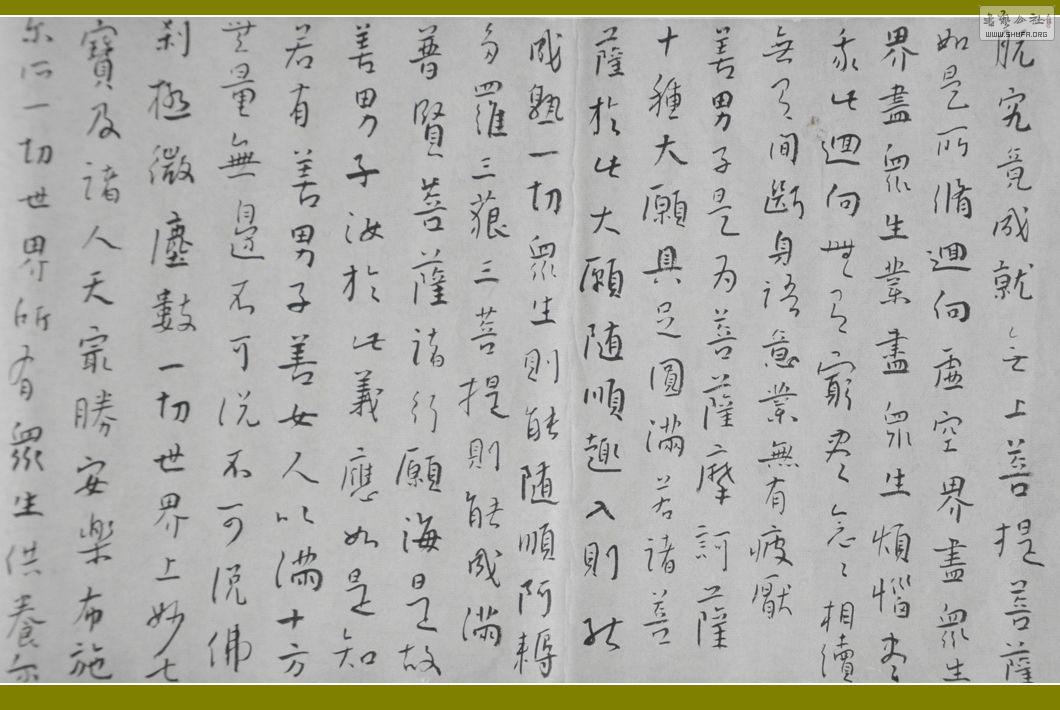 脱究竟成就无上菩提菩薩
如是所脩迴向虚空界盡衆生
界盡衆生業盡衆生煩惱盡
我此迴向無有窮盡念念相續
無有間斷身語意業無有疲厭
善男子是为菩薩摩訶薩
十種大願具足圓滿若諸菩
薩於此大願随順趣入則能
成熟一切衆生則能随順阿耨
多羅三藐三菩提則能成滿
普賢菩薩諸行願海是故
善男子汝於此義應如是知
若有善男子善女人以滿十方
無量無邊不可说不可说佛
刹極微塵數一切世界上妙七
寶及諸人天最勝安樂布施
尔所一切世界所有衆生供養尔
WWW.SHUFA.ORG